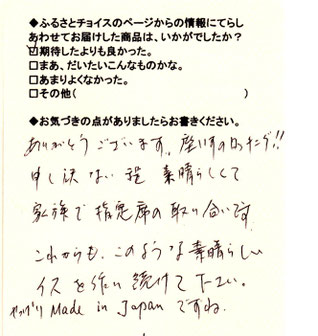 ◆ふるさとチョイスのページからの情報にてらし
あわせてお届けした商品は、いかがでしたか？
☑期待したよりも良かった。
□まあ、だいたいこんなものかな。
□あまりよくなかった。
□その他(　　　　　　　　　　)
◆お気づきの点がありましたらお書きください。
ありがとうございます。座いすのロッキング!!
申し訳ない程 素晴らしくて
家族で指定席の取り合いです
これからも、このような素晴らしい
イスを作り続けて下さい。
やっぱり Made in Japan ですね.